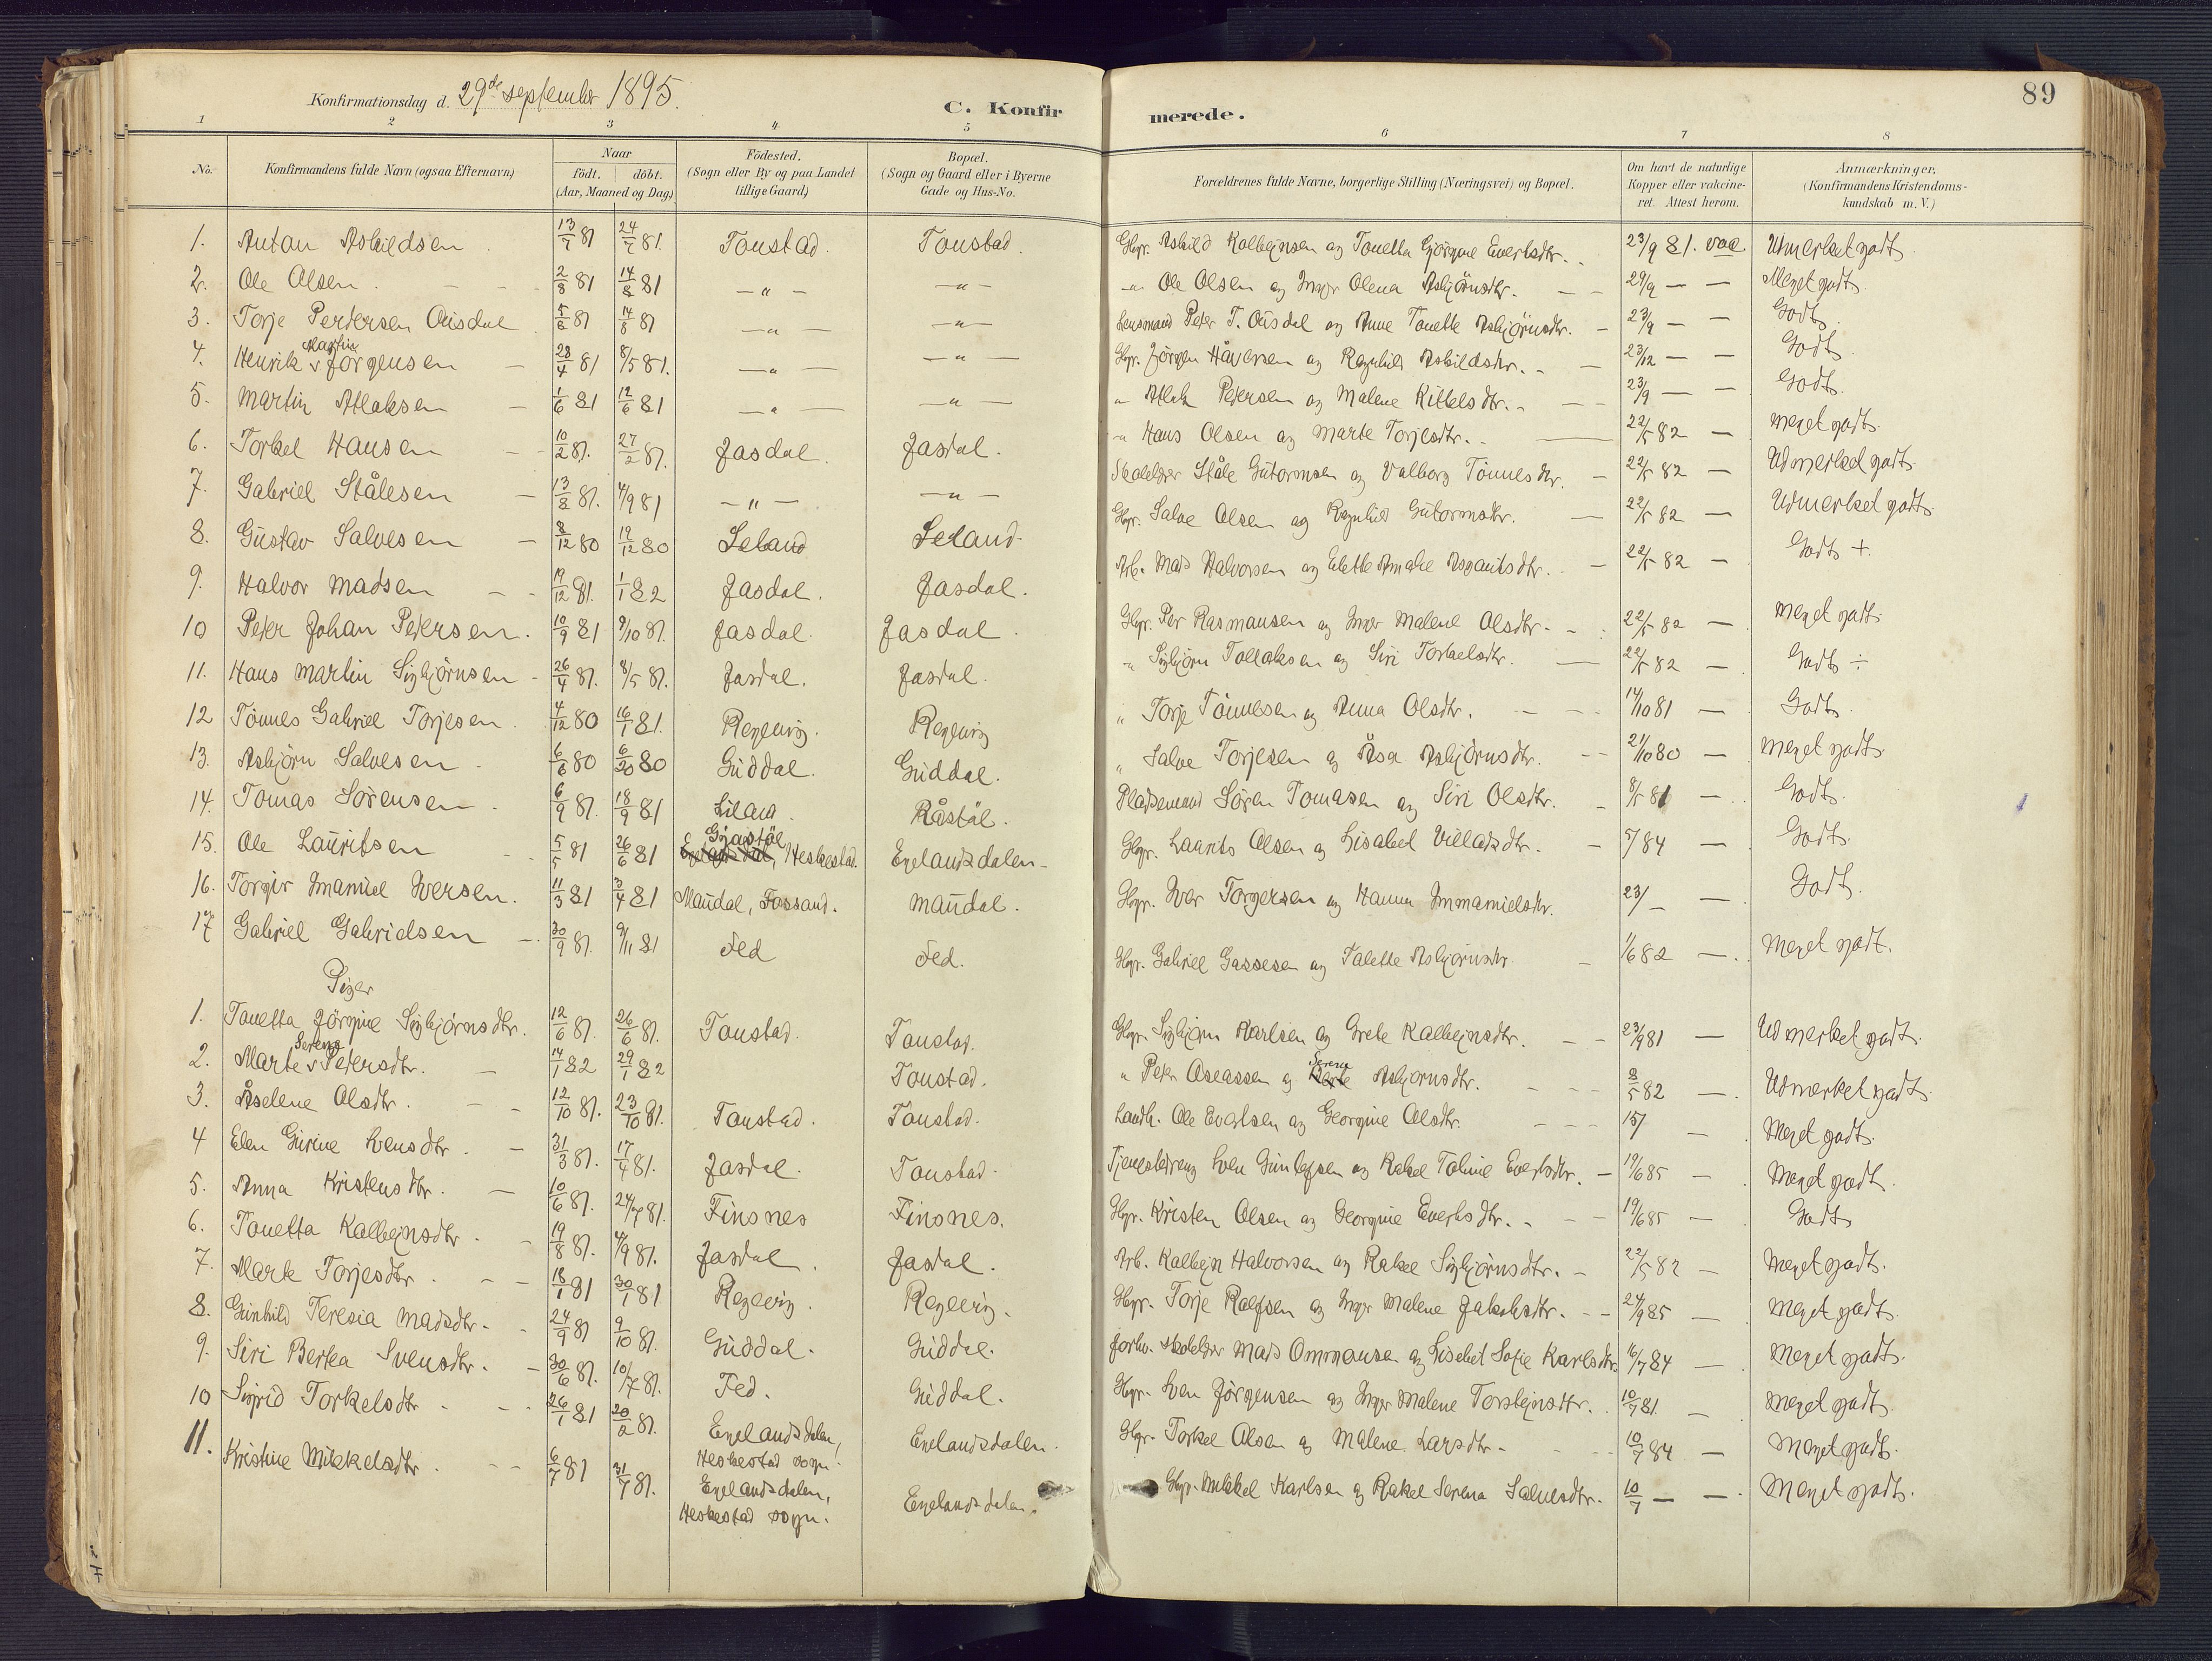 Konfirmationsdag d. 29de september 1895.
C. Konfirmerede.
89
1 2 3 4 5 6 7 8
No. Konfirmandens fulde Navn (ogsaa Efternavn) Naar födt. döbt. (Aar, Maaned og Dag) Födested. (Sogn eller By og paa Landet tillige Gaard) Bopæl. (Sogn og Gaard eller i Byerne Gade og Hus-No. Forældrenes fulde Navne, borgerlige Stilling (Næringsvei) og Bopæl. Om havt de naturlige Kopper eller vakcineret. Attest herom. Anmærkninger. (Konfirmandens Kristendomskundskab m. V.)
1. Antan Askildsen 13/7 81 24/7 81. Tonstad. Tonstad. Gbr. Askild Kalleijnsen og Tonetta Gjörgine Evertsdtr. 23/9 81. vac. Udmerket godt
2. Ole Olsen. 2/8 81 14/8 81 -"- -"- -"- Ole Olsen og Inger Olena Asbjörnsdtr. 29/9 - - Meget godt.
3. Torje Pedersen Ousdal 5/8 81 14/8 81 -"- -"- Lensmand Peter T. Ousdal og Anne Tonette Asbjörnsdtr. 23/9 - - Godt.
4. Henrik Martin Jörgensen 28/4 81 8/5 81. -"- -"- Gbr. Jörgen Håversen og Ragnhild Askildsdtr. 23/12 - - Godt.
5. Martin Atlaksen 1/6 81 12/6 81 -"- -"- " Atlak Pedersen og Malene Kittelsdtr. 23/9 - - Godt.
6. Torkel Hansen 10/2 81. 27/2 81. Josdal. Josdal. " Hans Olsen og Marte Torjesdtr. 22/5 82 - meget godt.
7. Gabriel Stålesen 13/8 81. 4/9 81 -"- -"- Skolelærer Ståle Gutormsen og Valborg Tönnesdtr. 22/5 82 - Udmerket godt.
8. Gustav Salvesen 8/12 80 19/12 80 Leland Leland Gbr. Salve Olsen og Ragnhild Gutormsdtr. 22/5 82 - Udmerket godt.
9. Halvor Madsen 19/12 81. 1/1 82 Josdal. Josdal. Arb. Mads Halvorsen og Elette Amalie Asgautsdtr. 22/5 82 - Godt +
10 Peter Johan Petersen. 10/9 81 9/10 81. Josdal. Josdal. Gbr. Per Rasmausen og Inger Malene Olsdtr. 22/5 82 - meget godt.
11. Hans Martin Sigbjörnsen 26/4 81. 8/5 81. Josdal. Josdal. " Sigbjörn Tollaksen og Siri Torkelsdtr. 22/5 82 - Godt ÷
12 Tönnes Gabriel Torjesen. 4/12 80 16/1 81. Regevig. Regevig " Torje Tönnesen og Anna Olsdtr. 14/10 81 - Godt.
13. Asbjörn Salvesen 6/6 80 6/20 80 Guddal. Guddal. " Salve Torjesen og Åsa Asbjörnsdtr. 21/10 80 - meget godt.
14. Tomas Sörensen 6/9 81. 18/9 81 Liland. Råstöl. Pladsemand Sören Tomasen og Siri Olsdtr. 8/5 81 - Godt.
15. Ole Lauritsen 5/5 81 26/6 81 Gyastöl, Heskestad. Egelandsdalen Gbr. Laurits Olsen og Lisabet Villadsdtr. 7/ 84 - Godt.
16. Torgir Imanuel Iversen. 11/3 81 3/4 81 Maudal, Fossand. Maudal. Gbr. Iver Torgersen og Hanna Immanuelsdtr. 23/ - - Godt.
17 Gabriel Gabrielsen 30/9 81. 9/11 81 Fed Fed. Gbr. Gabriel Gassesen og Talette Asbjörnsdtr 1/6 82 - meget godt.
Piger
1. Tonetta Jörgine Sigbjörnsdtr. 12/6 81. 26/6 81. Tonstad. Tonstad. Gbr. Sigbjörn Karlsen og Grete Kalleijnsdtr. 23/9 81 - Udmerket godt.
2. Marte Serena Petersdtr. 14/1 82 29/1 82 Tonstad. " Peter Aseassen og Serena Asbjornsdtr. 8/5 82 - Udmerket godt.
3. Åselene Olsdtr. 12/10 81. 23/10 81. Tonstad. Tonstad. Landh. Ole Evertsen og Georgine Olsdtr. 15/ - Meget godt.
4 Elen Gurine Svensdtr. 31/3 81. 17/4 81. Josdal. Tonstad. Tjenestedreng Sven Gunlefsen og Rakel Taline Evertsdtr. 19/6 85 - Meget godt.
5. Anna Kristensdtr. 10/6 81. 24/7 81. Finsnes Finsnes. Gbr. Kristen Olsen og Georgine Evertsdtr. 19/6 85 - Godt
6. Tonetta Kalleijnsdtr. 19/8 81. 4/9 81. Josdal. Josdal. Arb. Kalleijn Halvorsen og Rakel Sigbjörnsdtr. 22/5 82 - meget godt.
7. Marte Torjesdtr. 18/1 81 30/1 81 Regevig. Regevig. Gbr. Torje Ralfsen og Inger Malene Jakobsdtr. 24/9 85 - meget godt.
8. Gunhild Teresia Madsdtr. 24/9 81 9/10 81. Guddal. Guddal. forhv. skolelærer Mads Ommunsen og Lisebet Sofie Karlsdtr. 16/7 84 - meget godt.
9. Siri Bertea Svensdtr. 30/6 81. 10/7 81. Fed. Guddal. Gbr. Sven Jörgensen og Inger Malene Torsteinsdtr. 10/7 81. - meget godt.
10 Sigrid Torkelsdtr. 26/1 81 20/2 81. Egelandsdalen, Heskestad sogn. Egelandsdalen. Gbr. Torkel Olsen og Malene Larsdtr. 10/7 84 - meget godt.
11. Kristine Mikkelsdtr. 6/7 81 31/7 81. Egelandsdalen, Heskestad sogn. Egelandsdalen. Gbr. Mikkel Karlsen og Rakel Serena Salvesdtr. 10/7 - - Meget godt.